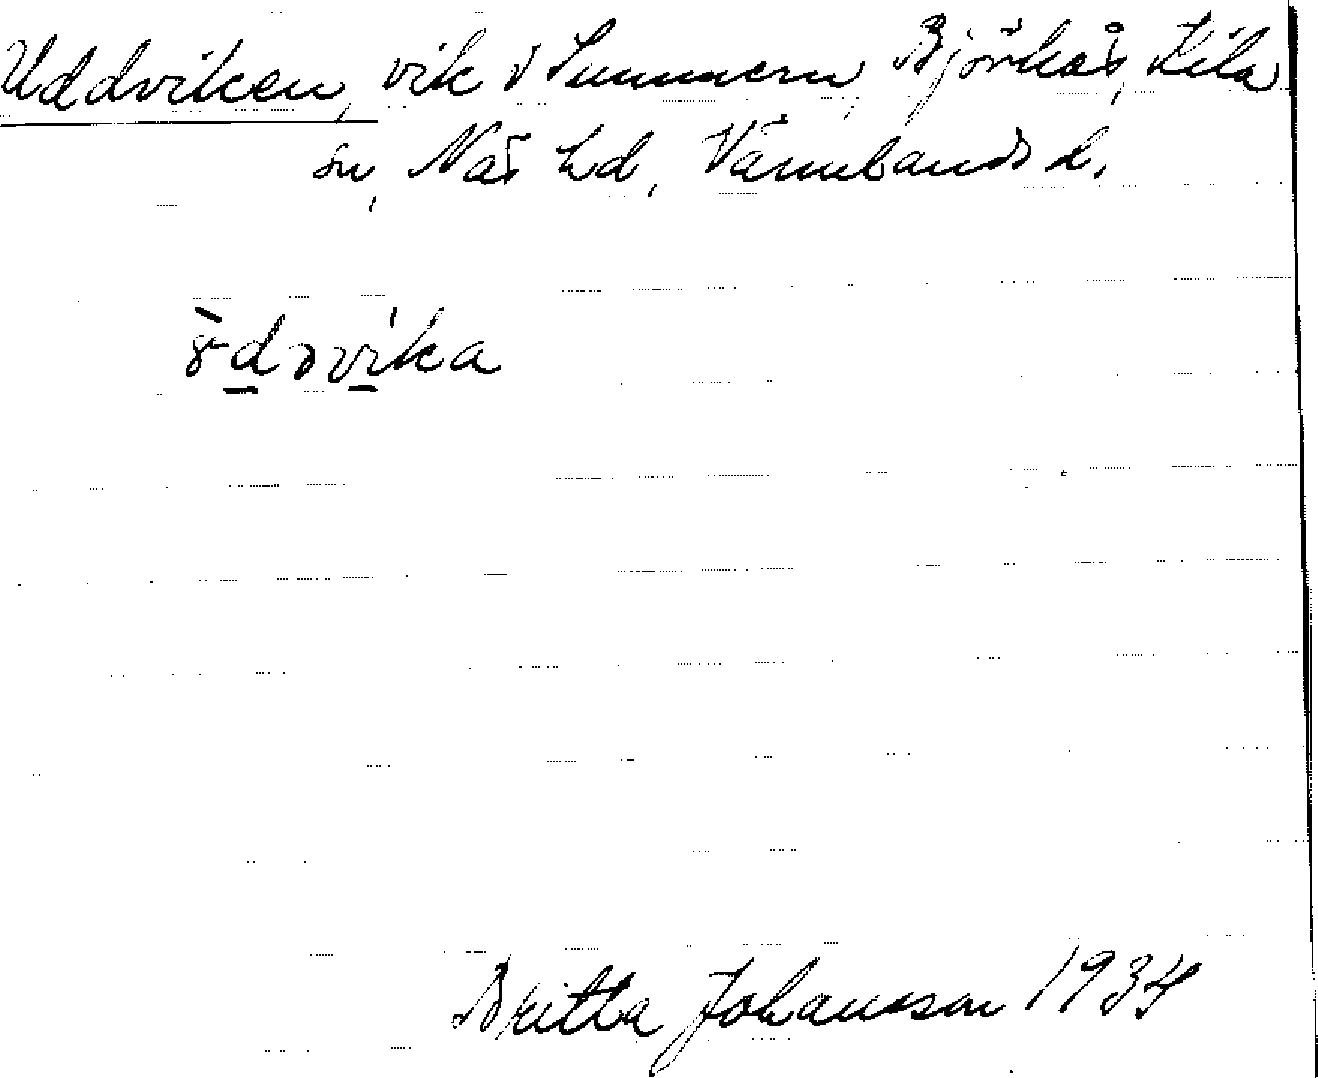 Uddviken, vik i Summern, Björkås, Kila
sn, Näs hd, Värmlands l.
Britta Johansson 1934